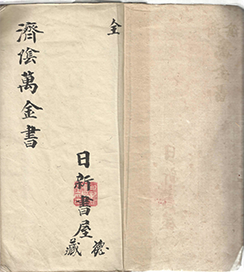 全
濟陰萬金書
日新書屋
藏